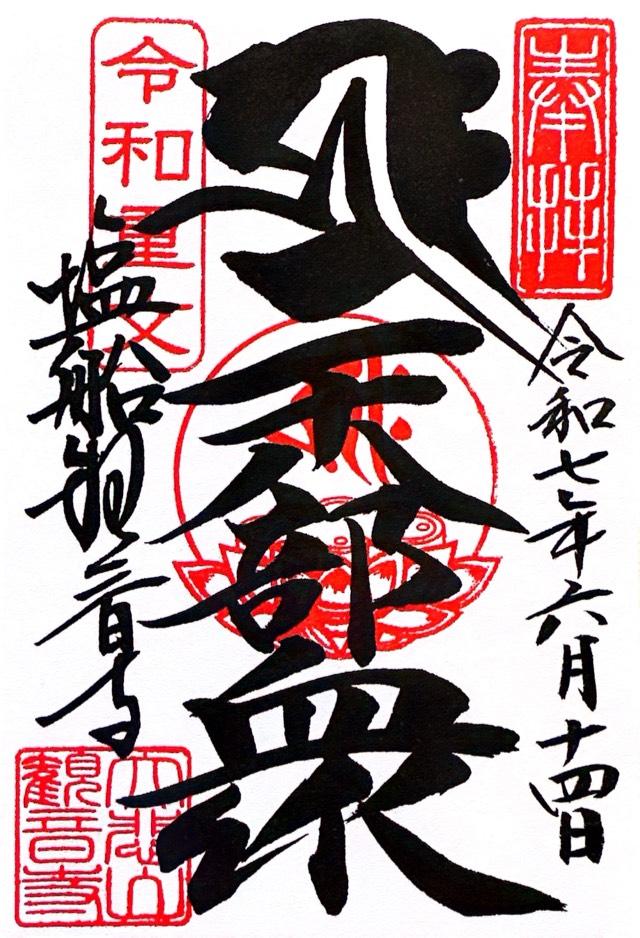 奉拝
令和七年六月十四日
二十八部衆
令和重文
塩船観音寺
大悲山
観音寺